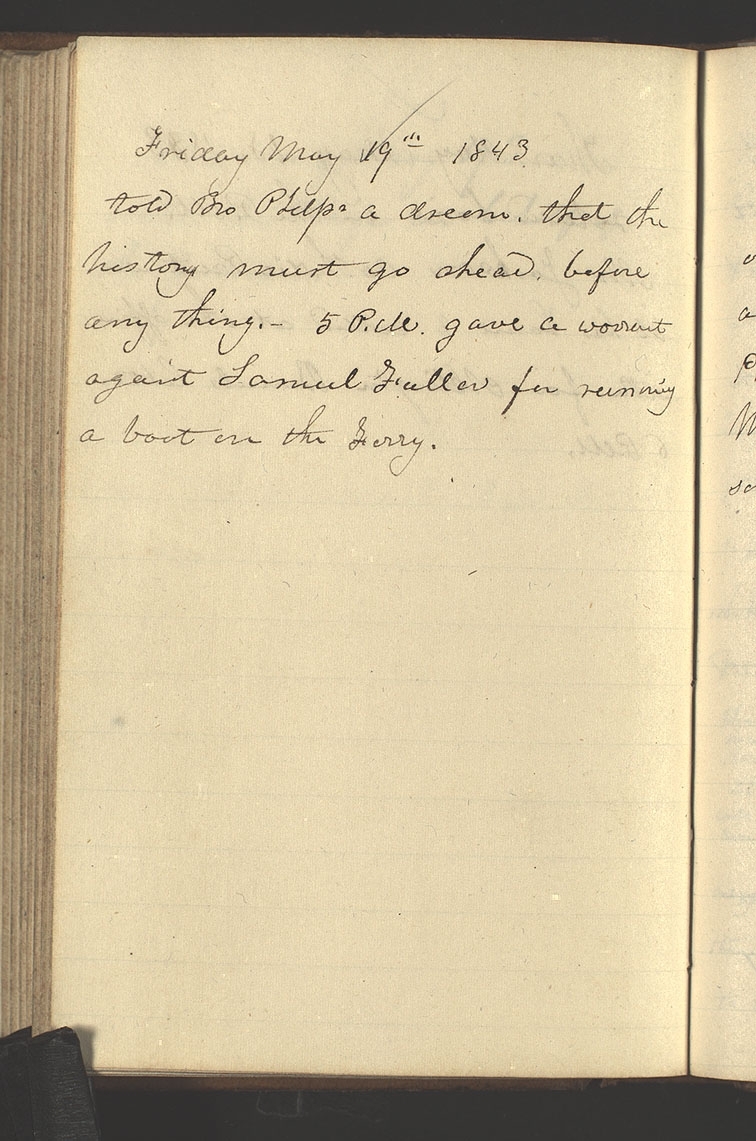 Friday May 19th 1843
told Bro Phelps a dream. that the
history must go ahead. before
any thing.- 5 P.M. gave a warrant
against Samuel Fuller for running
a boat on the Ferry.